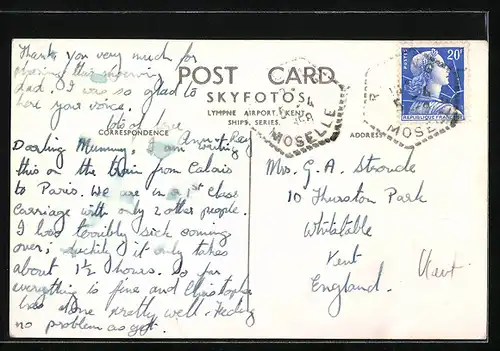 Thank you very much for
phoning this morning
Dad. I was so glad to
hear your voice.
lots of love
POST CARD
SKYFOTOS
LYMPNE AIRPORT, KENT
SHIPS, SERIES.
CORRESPONDENCE
ADDRESS
MOSELLE
MOSELLE
20F
REPUBLIQUE FRANÇAISE
Darling Mummy, I am writing
this on the train from Calais
to Paris. We are in a 1st Class
Carriage with only 2 other people.
I was terribly sick coming
over; luckily it only takes
about 1½ hours. So far
everything is fine and Christopher
has done pretty well. Feeding
no problem as yet.
Mrs. G. A. Stroude
10 Thurston Park
Whitstable
Kent
England.
Kent.